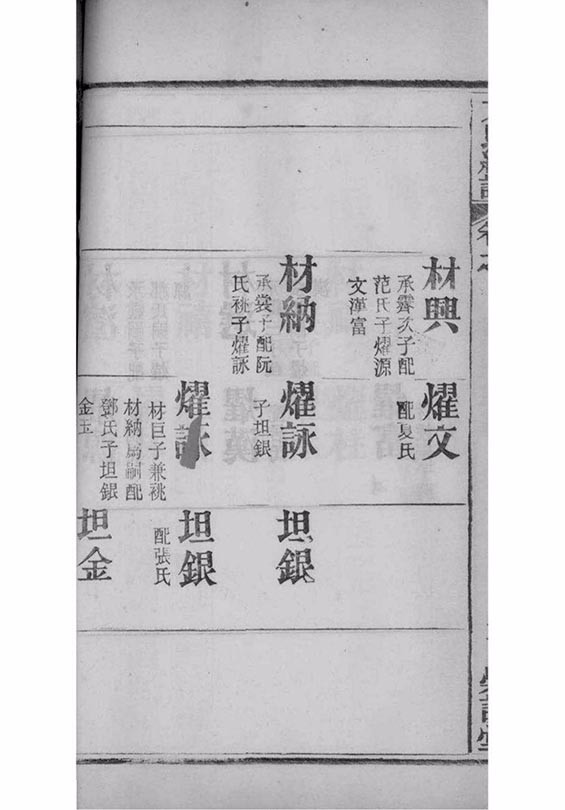 材興
承霽次子配
范氏子燿源
文漢富
燿文
配夏氏
材納
承裳子配阮
氏祧子燿詠
燿詠
子坦銀
坦銀
燿詠
材巨子兼祧
材納爲嗣配
鄧氏子坦銀
金玉
坦銀
配張氏
坦金